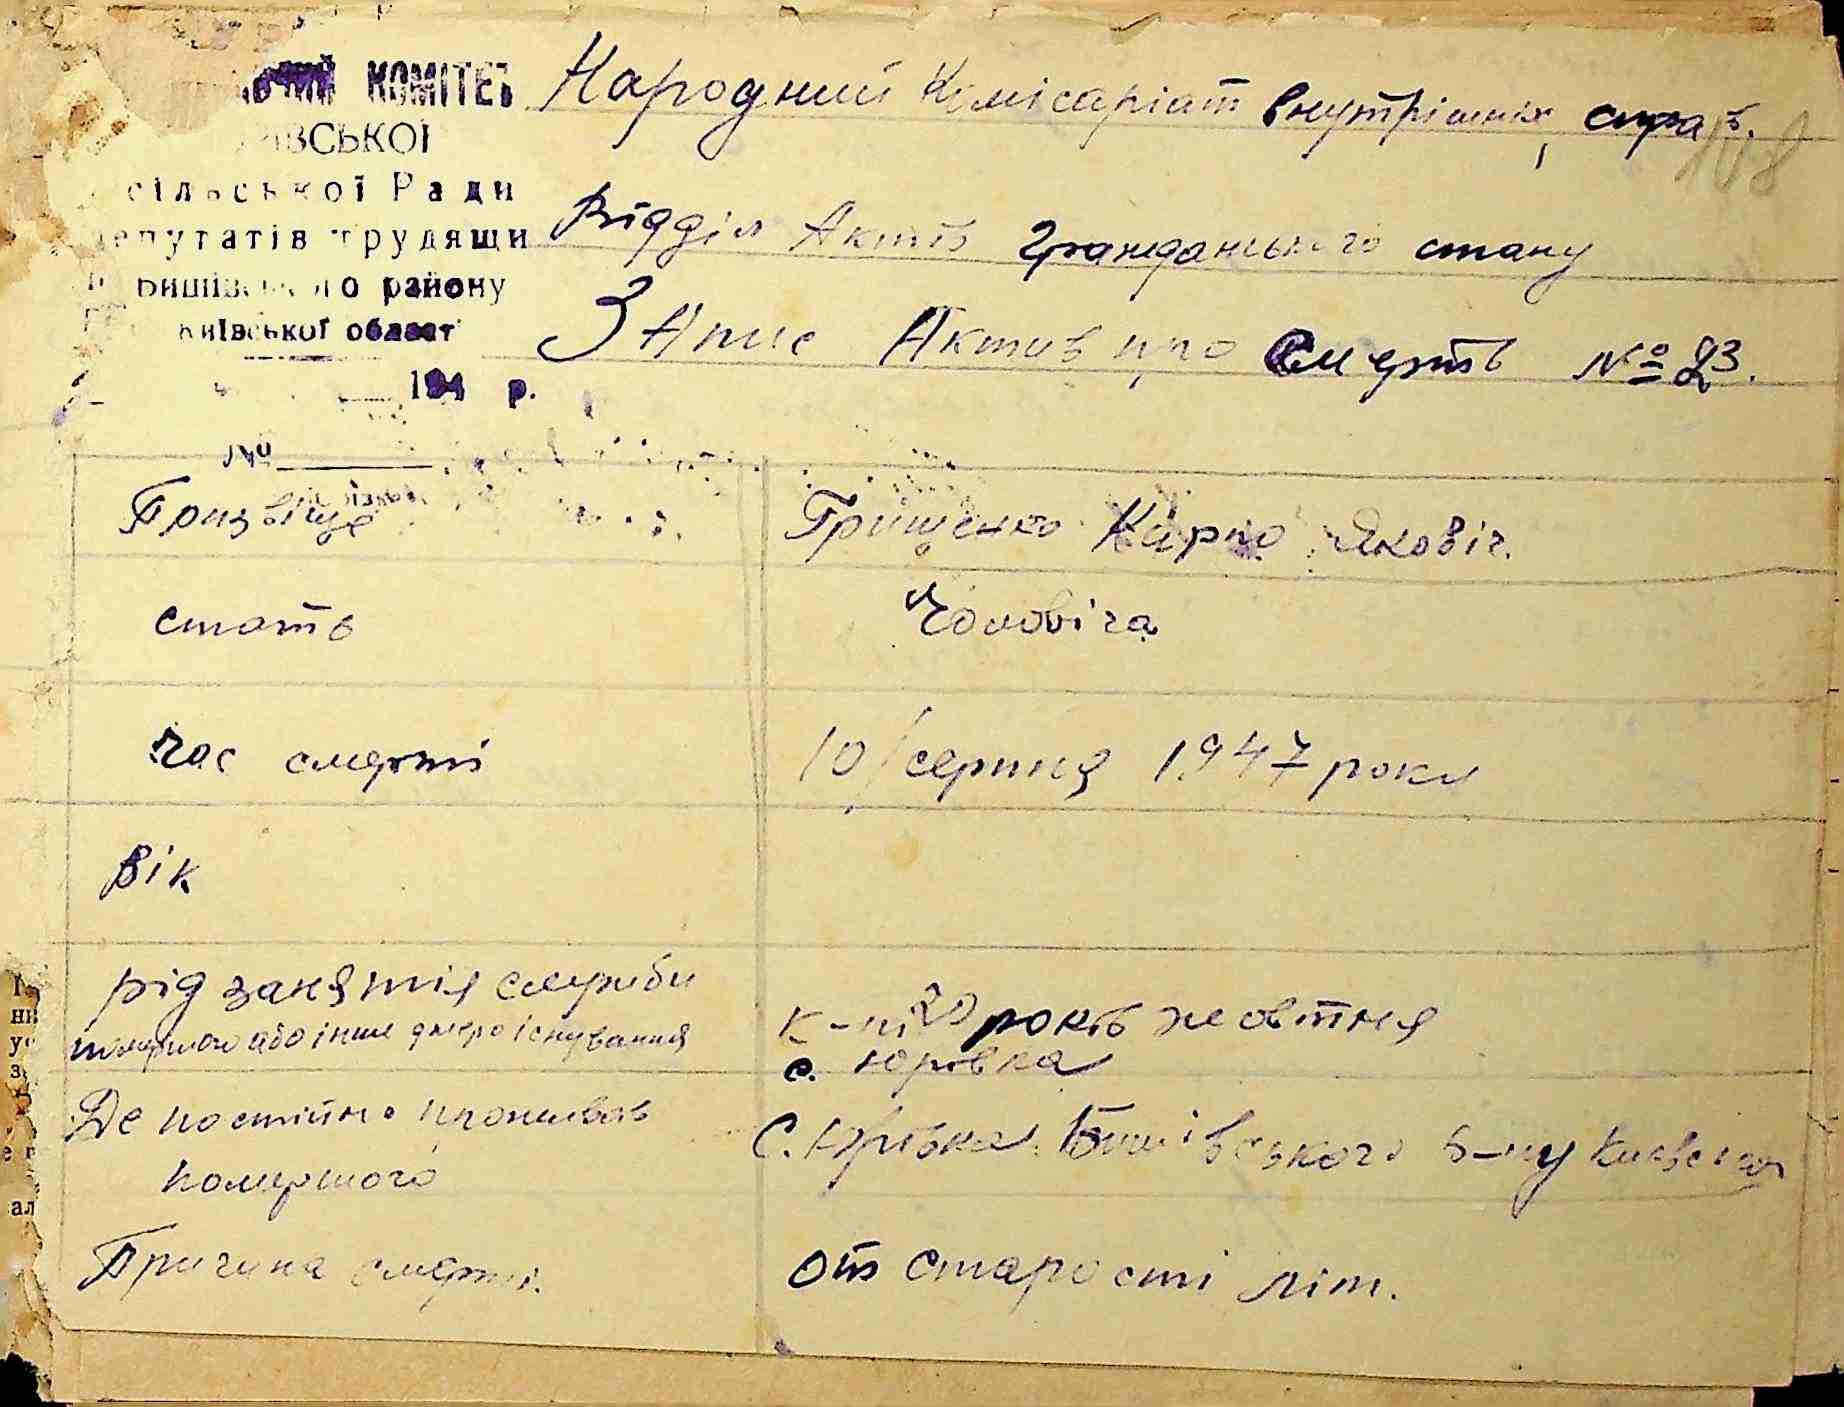 КОМІТЕТ
ІВСЬКОЇ
сільської Ради
депутатів трудящи
Бишівського району
Київської област
194 р.
№
Народний Комісаріат внутрішніх справ.
108
Відділ Актів Гражданського стану
ЗАпис Актив про Смерть № 23.
Призвіще
Грищенко Карпо Яковіч.
стать
Чоловіча
час смерті
10/серпня 1947 року
Вік
рід заняття служби
помершого або інше джеро існування
К-пі 20 років жовтня
с. Юрівка
Де постійно проживав
помершого
С. Юрівка Бишівського р-ну
Причина смерті.
от старості літ.